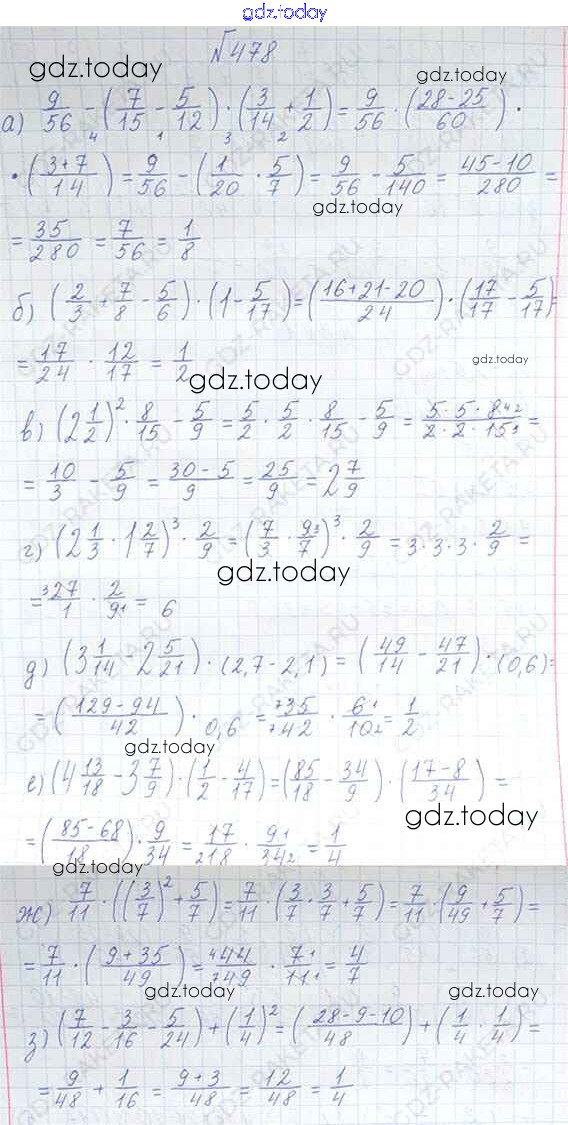 gdz.today
№478
gdz.today
gdz.today
а) 9/56 - (7/15 - 5/12) · (3/14 + 1/2) = 9/56 · (28-25/60) ·
4 1 3 2
· (3+7/14) = 9/56 - (1/20 · 5/7) = 9/56 - 5/140 = 45-10/280 =
gdz.today
= 35/280 = 7/56 = 1/8
б) (2/3 + 7/8 - 5/6) · (1 - 5/17) = (16+21-20/24) · (17/17 - 5/17) =
= 17/24 · 12/17 = 1/2
gdz.today
gdz.today
в) (2 1/2)² · 8/15 - 5/9 = 5/2 · 5/2 · 8/15 - 5/9 = 5·5·8 42/2·2·15 3 =
= 10/3 - 5/9 = 30-5/9 = 25/9 = 2 7/9
г) (2 1/3 · 1 2/7)³ · 2/9 = (7/3 · 9 3/7)³ · 2/9 = 3·3·3· 2/9 =
gdz.today
= 3 27/1 · 2/9 1 = 6
д) (3 1/14 - 2 5/21) · (2,7-2,1) = (49/14 - 47/21) · (0,6) =
= (129-94/42) · 0,6 = 35/42 · 6/10 = 1/2
gdz.today
е) (4 13/18 - 3 7/9) · (1/2 - 4/17) = (85/18 - 34/9) · (17-8/34) =
gdz.today
= (85-68/18) · 9/34 = 17/2 18 · 9 1/34 2 = 1/4
gdz.today
ж) 7/11 · ((3/7)² + 5/7) = 7/11 · (3/7 · 3/7 + 5/7) = 7/11 · (9/49 + 5/7) =
= 7/11 · (9+35/49) = 4 44/7 49 · 7 1/11 1 = 4/7
gdz.today
gdz.today
з) (7/12 - 3/16 - 5/24) + (1/4)² = (28-9-10/48) + (1/4 · 1/4) =
= 9/48 + 1/16 = 9+3/48 = 12/48 = 1/4